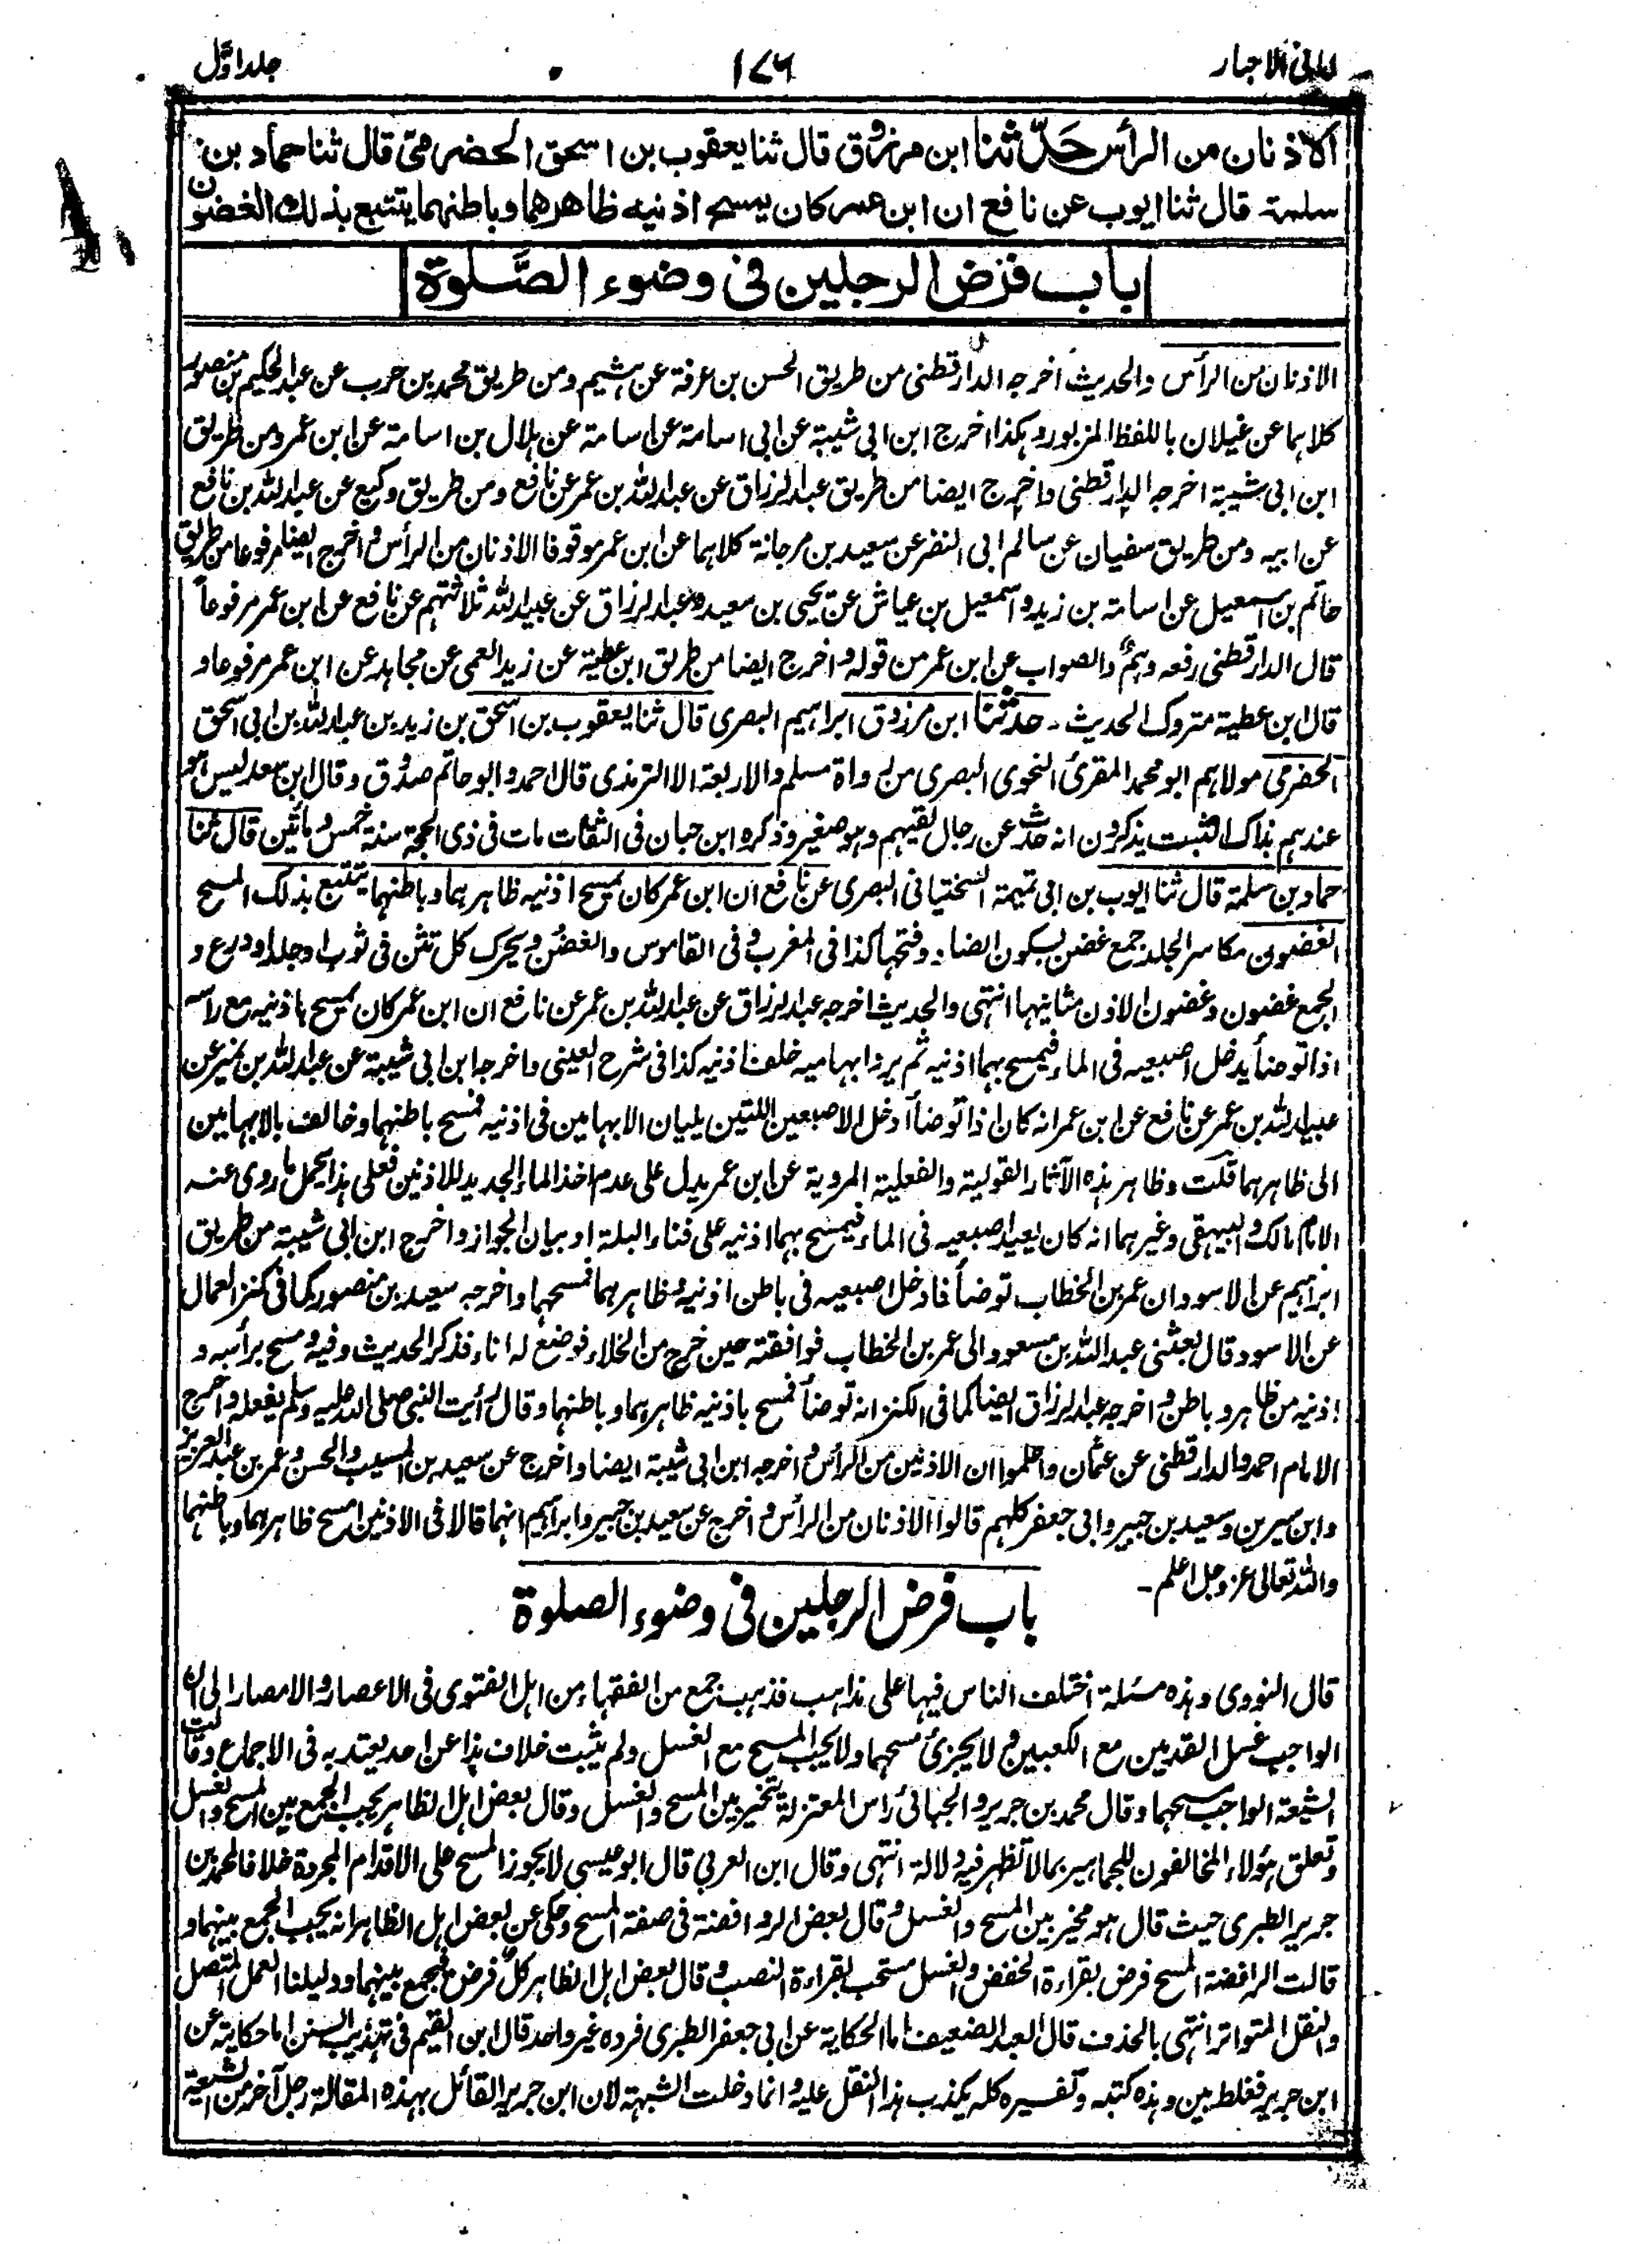 امانی الاحبار ١٧٦ جلد اوّل
الاذنان من الرأس حَدَّثنا ابن مرزوق قال ثنا يعقوب بن اسحق الحضرمي قال ثنا حماد بن
سلمة قال ثنا ايوب عن نافع ان ابن عمر كان يمسح اذنيه ظاهرهما وباطنهما يتتبع بذلك الغضون
باب فرض الرجلين فى وضوء الصَّلوة
الاذنان من الرأس والحديث اخرجه الدارقطنى من طريق الحسن بن عرفة عن هشيم ومن طريق محمد بن حرب عن عبد الحكيم بن منصور
كلاهما عن غيلان باللفظ المزبور وهكذا اخرج ابن ابى شيبة عن ابى اسامة عن اسامة عن هلال بن اسامة عن ابن عمر ومن طريق
ابن ابى شيبة اخرجه الدارقطنى واخرج ايضا من طريق عبد الرزاق عن عبد الله بن عمر عن نافع ومن طريق وكيع عن عبد الله بن نافع
عن ابيه ومن طريق سفيان عن سالم ابى النضر عن سعيد بن مرجانة كلاهما عن ابن عمر موقوفا الاذنان من الرأس واخرج ايضا مرفوعا من طريق
حاتم بن اسمعيل عن اسامة بن زيد واسمعيل بن عياش عن يحيى بن سعيد وعبد الرزاق عن عبيد الله ثلاثتهم عن نافع عن ابن عمر مرفوعاً
قال الدارقطنى رفعه وهمٌ والصواب عن ابن عمر من قوله واخرج ايضا من طريق ابن عطية عن زيد العمى عن مجاهد عن ابن عمر مرفوعا و
قال ابن عطية متروك الحديث - حدثنا ابن مرزوق ابراهيم البصرى قال ثنا يعقوب بن اسحق بن زيد بن عبد الله بن ابى اسحق
الحضرمى مولاهم ابو محمد المقرئ النحوى البصرى من رواة مسلم والاربعة الا الترمذى قال احمد وابو حاتم صدوق وقال ابن سعد ليس هو
عندهم بذاك الثبت يذكرون انه حدث عن رجال لقيهم وهو صغير وذكره ابن حبان فى الثقات مات فى ذى الحجة سنة خمس ومأتين قال ثنا
حماد بن سلمة قال ثنا ايوب بن ابى تميمة السختيانى البصرى عن نافع ان ابن عمر كان يمسح اذنيه ظاهرهما وباطنهما يتتبع بذلك المسح
الغضون مكاسر الجلد جمع غضن بسكون الضاد وفتحها كذا فى المغرب وفى القاموس والغضن ويحرك كل تثن فى ثوب او جلد او درع و
الجمع غضون وغضون الاذن مثانيها انتهى والحديث اخرجه عبد الرزاق عن عبد الله بن عمر عن نافع ان ابن عمر كان يمسح باذنيه مع رأسه
اذا توضأ يدخل اصبعيه فى الماء فيمسح بهما اذنيه ثم يرد ابهاميه خلف اذنيه كذا فى شرح العينى واخرجه ابن ابى شيبة عن عبد الله بن نمير عن
عبيد الله بن عمر عن نافع عن ابن عمر انه كان اذا توضأ ادخل الاصبعين اللتين يليان الابهامين فى اذنيه فمسح باطنهما وخالف بالابهامين
الى ظاهرهما قلت وظاهر هذه الآثار القولية والفعلية المروية عن ابن عمر يدل على عدم اخذ الماء الجديد للاذنين فعلى هذا يحمل ما روى عنه
الامام مالك والبيهقى وغيرهما انه كان يعيد اصبعيه فى الماء فيمسح بهما اذنيه على فناء البلة او بيان الجواز واخرج ابن ابى شيبة من طريق
ابراهيم عن الاسود ان عمر بن الخطاب توضأ فادخل اصبعيه فى باطن اذنيه وظاهرهما فمسحهما واخرجه سعيد بن منصور كما فى كنز العمال
عن الاسود قال بعثنى عبد الله بن مسعود الى عمر بن الخطاب فوافقته حين خرج من الخلاء فوضع له اناء فذكر الحديث وفيه ومسح برأسه و
اذنيه من ظاهر وباطن واخرجه عبد الرزاق ايضا كما فى الكنز انه توضأ فمسح باذنيه ظاهرهما وباطنهما وقال رأيت النبى صلى الله عليه وسلم يفعله واخرج
الامام احمد والدارقطنى عن عثمان واعلموا ان الاذنين من الرأس واخرجه ابن ابى شيبة ايضا واخرج عن سعيد بن المسيب والحسن وعمر بن عبد العزيز
وابن سيرين وسعيد بن جبير وابى جعفر كلهم قالوا الاذنان من الرأس واخرج عن سعيد بن جبير وابراهيم انهما قالا فى الاذنين امسح ظاهرهما وباطنهما
والله تعالى عز وجل اعلم -
باب فرض الرجلين فى وضوء الصلوة
قال النووى وهذه مسئلة اختلف الناس فيها على مذاهب فذهب جمع من الفقهاء من اهل الفتوى فى الاعصار والامصار الى ان
الواجب غسل القدمين مع الكعبين ولا يجزئ مسحهما ولا يجب المسح مع الغسل ولم يثبت خلاف هذا عن احد يعتد به فى الاجماع وقالت
الشيعة الواجب مسحهما وقال محمد بن جرير والجبائى رأس المعتزلة يتخير بين المسح والغسل وقال بعض اهل الظاهر يجب الجمع بين المسح والغسل
وتعلق هؤلاء المخالفون للجماهير بما لا تظهر فيه دلالة انتهى وقال ابن العربى قال ابو عيسى لا يجوز المسح على الاقدام المجردة خلافا لمحمد بن
جرير الطبرى حيث قال هو مخير بين المسح والغسل وقال بعض الروافضة فى صفة المسح وحكى عن بعض اهل الظاهر انه يجب الجمع بينهما و
قالت الرافضة المسح فرض بقراءة الخفض والغسل مستحب بقراءة النصب وقال بعض اهل الظاهر كل فرض فيجمع بينهما ودليلنا العمل المتصل
والنقل المتواتر انتهى بالحذف قال العبد الضعيف اما الحكاية عن ابى جعفر الطبرى فرده غير واحد قال ابن القيم فى تهذيب السنن اما حكايته عن
ابن جرير فغلط بين وهذه كتبه وتفسيره كله يكذب هذا النقل عليه وانما دخلت الشبهة لان ابن جرير القائل بهذه المقالة رجل آخر من الشيعة